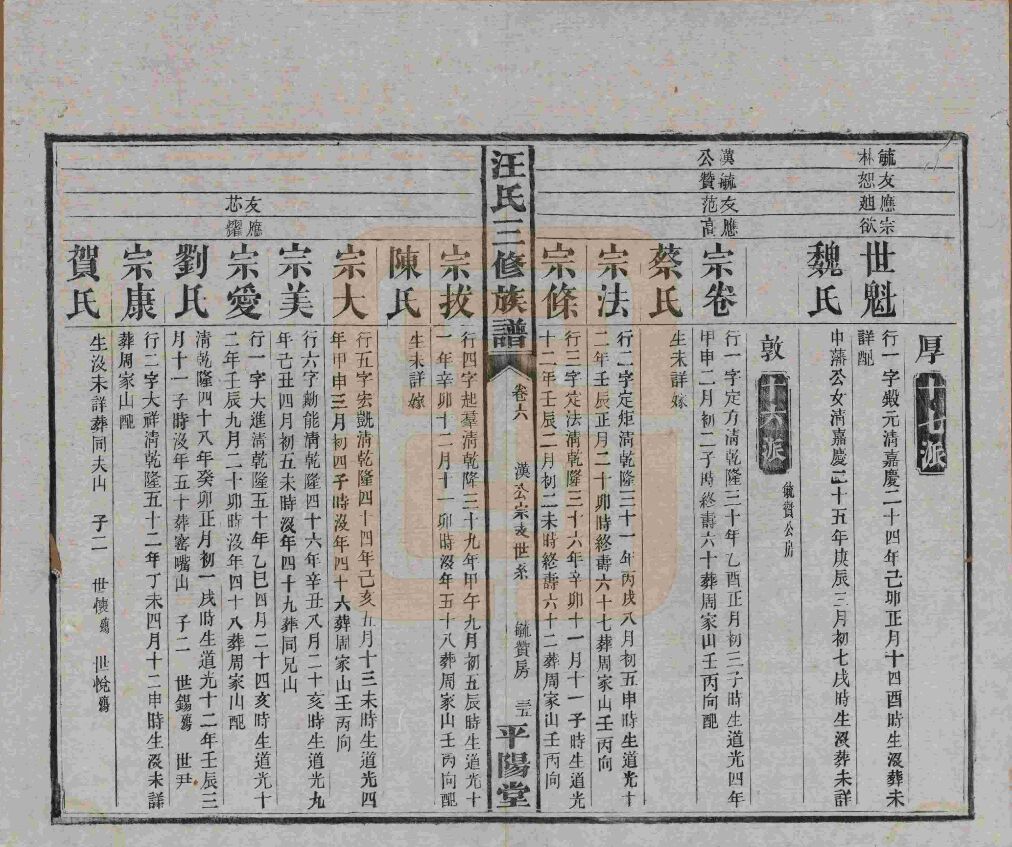 厚 十七派
毓友應宗
林恕迪欲
世魁
行一字緞元清嘉慶二十四年己卯正月十四酉時生沒葬未
詳配
魏氏
中藩公女清嘉慶二十五年庚辰三月初七戌時生沒葬未詳
敦 十六派 毓贊公房
漢毓友應
公贊范高
宗卷
行一字定方清乾隆三十年乙酉正月初三子時生道光四年
甲申二月初二子時終壽六十葬周家山壬丙向配
蔡氏
生未詳嫁
宗法
行二字定矩清乾隆三十一年丙戌八月初五申時生道光十
二年壬辰正月二十卯時終壽六十七葬周家山壬丙向
宗條
行三字定法清乾隆三十六年辛卯十一月十一子時生道光
十二年壬辰二月初二未時終壽六十二葬周家山壬丙向
汪氏三修族譜
卷六
漢公宗支世系
毓贊房
三五
平陽堂
宗拔
行四字起羣清乾隆三十九年甲午九月初五辰時生道光十
一年辛卯十二月十一卯時沒年五十八葬周家山壬丙向配
陳氏
生未詳嫁
宗大
行五字宏凱清乾隆四十四年己亥五月十三未時生道光四
年甲申三月初四子時沒年四十六葬周家山壬丙向
宗美
行六字勳能清乾隆四十六年辛丑八月二十亥時生道光九
年己丑四月初五未時沒年四十九葬同兄山
友應
芯耀
宗愛
行一字大進清乾隆五十年乙巳四月二十四亥時生道光十
二年壬辰九月二十卯時沒年四十八葬周家山配
劉氏
清乾隆四十八年癸卯正月初一戌時生道光十二年壬辰三
月十一子時沒年五十葬窰嘴山 子二 世錫殤 世尹
宗康
行二字大祥清乾隆五十二年丁未四月十二申時生沒未詳
葬周家山配
賀氏
生沒未詳葬同夫山 子二 世懷殤 世悅殤